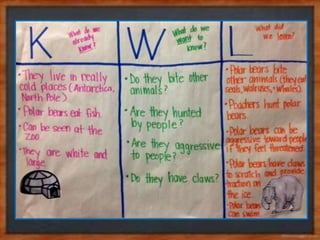 K
What do we
already
know?
• They live in really
cold places (Antarctica,
North Pole)
• Polar bears eat fish.
• Can be seen at the
zoo
• They are white and
large
W
What do we
want to
know?
• Do they bite other
animals?
• Are they hunted
by people?
• Are they aggressive
to people?
• Do they have claws?
L
What did
we learn?
• Polar bears bite
other animals (they eat
seals, walruses, + whales).
• Poachers hunt polar
bears.
• Polar bears can be
aggressive toward people
if they feel threatened.
• Polar bears have claws
to scratch and provide
traction on
the ice.
• Polar bears
can swim